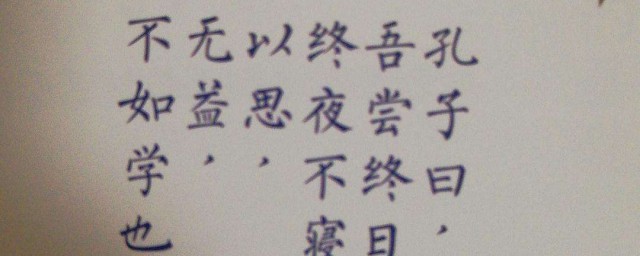 孔子曰，
吾尝终日
终夜不寝
以思，
无益，
不如学也